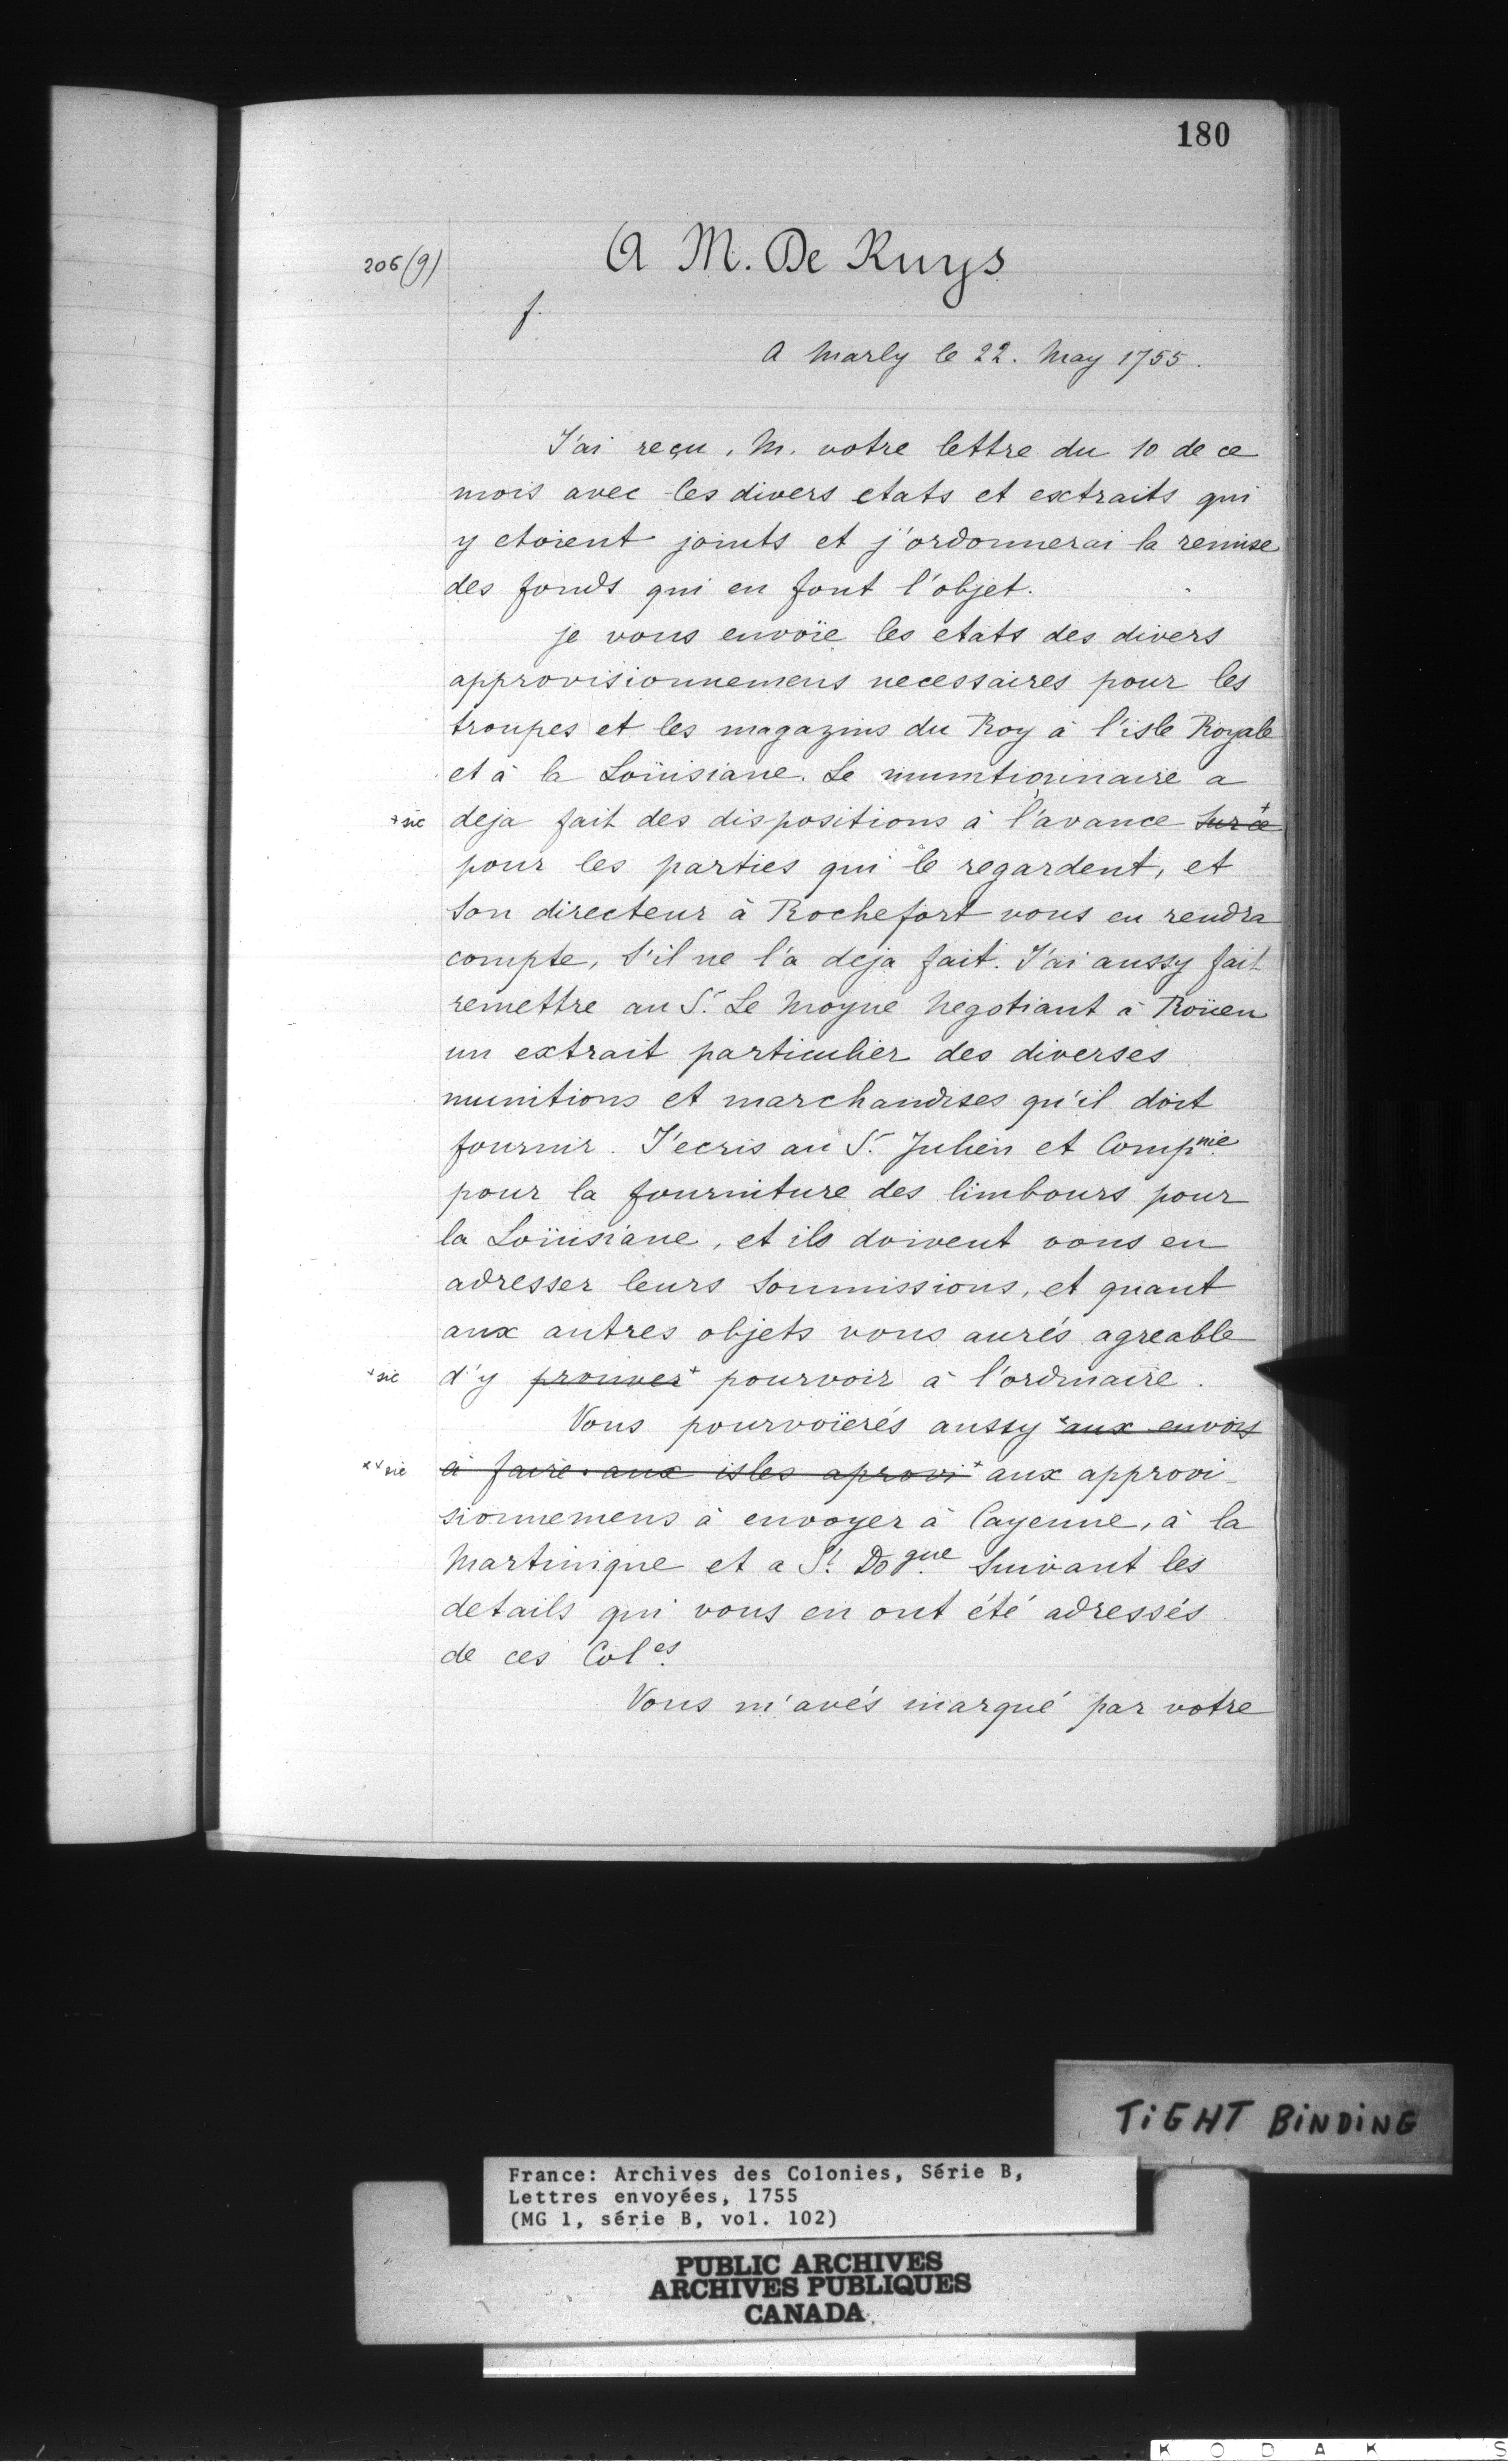 180
206(9)
A M. De Ruys
f.
A Marly le 22. May 1755.
J'ai reçu, M. votre lettre du 10 de ce
mois avec les divers etats et extraits qui
y etoient joints et j'ordonnerai la remise
des fonds qui en font l'objet.
je vous envoïe les etats des divers
approvisionnemens necessaires pour les
troupes et les magazins du Roy à l'isle Royale
et à la Loüisiane. Le munitionnaire a
+ sic deja fait des dispositions à l'avance sur ce +
pour les parties qui le regardent, et
son directeur à Rochefort vous en rendra
compte, s'il ne l'a deja fait. J'ai aussy fait
remettre au Sr. Le Moyne Negotiant à Roüen
un extrait particulier des diverses
munitions et marchandises qu'il doit
fournir. J'ecris au Sr. Julien et Compnie
pour la fourniture des limbours pour
la Loüisiane, et ils doivent vous en
adresser leurs soumissions, et quant
aux autres objets vous aurés agreable
+ sic d'y prouver + pourvoir à l'ordinaire.
Vous pourvoïerés aussy x aux envois
x x sic à faire aux isles aprovi + aux approvi-
sionnemens à envoyer à Cayenne, à la
Martinique et a St. Dogue. suivant les
details qui vous en ont été adressés
de ces Coles.
Vous m'avés marqué par votre
TIGHT BINDING
France: Archives des Colonies, Série B,
Lettres envoyées, 1755
(MG 1, série B, vol. 102)
PUBLIC ARCHIVES
ARCHIVES PUBLIQUES
CANADA
K O D A K S